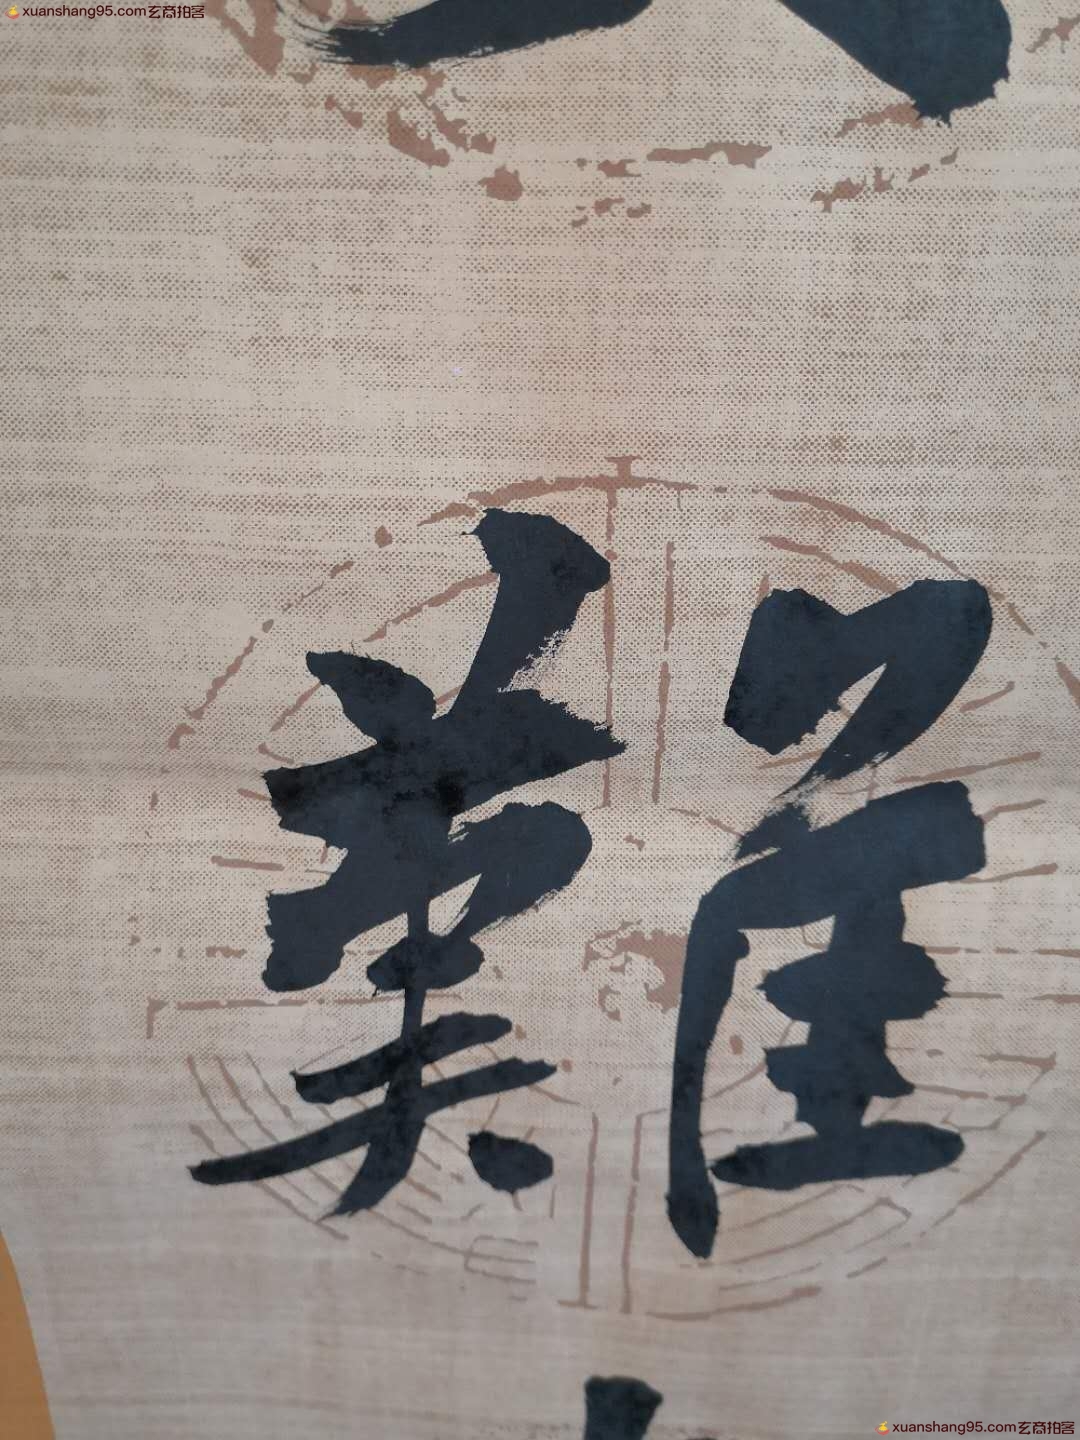 xuanshang95.com玄商拍客
難
xuanshang95.com玄商拍客